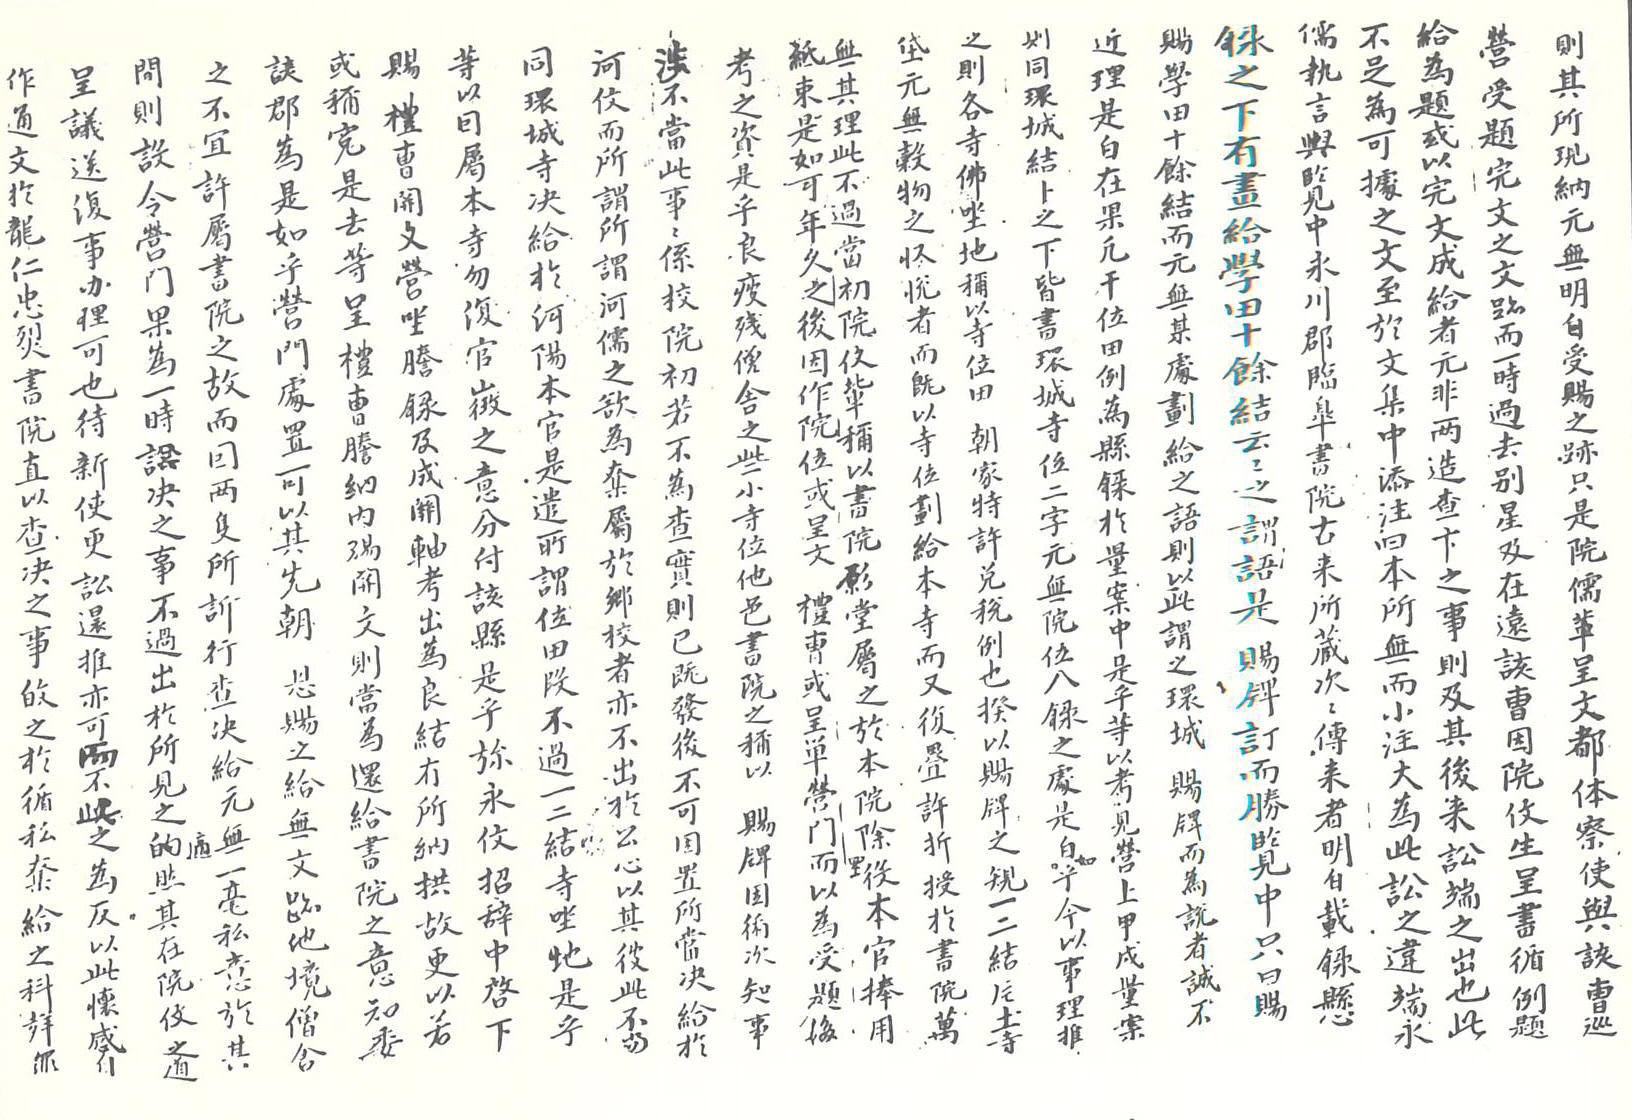 則其所現納元無明白受賜之跡只是院儒輩呈文都体察使與該曹巡
營受題完文之文蹟而一時過去別星及在遠該曹因院伩生呈書循例題
給為題或以完文成給者元非两造查卞之事則及其後来訟端之出也此
不足為可據之文至於文集中添注曰本所無而小注大為此訟之違端永
儒執言輿覧中永川郡臨皐書院古来所蔵次〻傳来者明白載録懸
録之下有畫給學田十餘結云〻之謂語是 賜牌訂而勝覧中只曰賜
賜學田十餘結而元無某處劃給之語則以此謂之環城 賜牌而為説者誠不
近理是白在果凡干位田例為縣録於量案中是乎等以考見營上甲戌量案
則同環城結卜之下皆書環城寺位二字元無院位八録之處是白如乎今以事理推
之則各寺佛坐地稱以寺位田 朝家特許免税例也揆以賜牌之規一二結片土寺
垈元無穀物之怪恠者而既以寺位劃給本寺而又復疊許折授於書院萬
無其理此不過當初院伩輩稱以書院影堂屬之於本院除役本官捧用
紙束是如可年久之後因作院位或呈文 禮曹或呈単營門而以為受題後
考之資是乎良疲残僧舍之些小寺位他邑書院之稱以 賜牌因術次知事
涉不當此事〻係校院初若不為查實則已既發後不可因置所當决給於
河伩而所謂所謂河儒之欲為奪屬於郷校者亦不出於公心以其彼此不当
同環城寺决給於河陽本官是遣所謂位田段不過一二結寺坐地是乎
等以因屬本寺勿復官徴之意分付該縣是乎旀永伩招辞中啓下
賜 禮曹關文營坐謄録及成關軸考出為良結冇所納拱故更以若
或稱寃是去等呈禮曹謄納内煬關文則當為還給書院之意知委
該郡為是如乎營門處置可以其先朝 恩賜之給無文蹟他境僧舍
之不冝許屬書院之故而曰两隻所訴行查决給元無一毫私意於其
間則設令營门果為一時誤决之事不過出於所見之的照其在院伩之道
適
呈議送復事办理可也待新使更訟還推亦可而不此之為反以此懷感自
作通文於龍仁忠烈書院直以查决之事的之於循私奪給之科拜罪